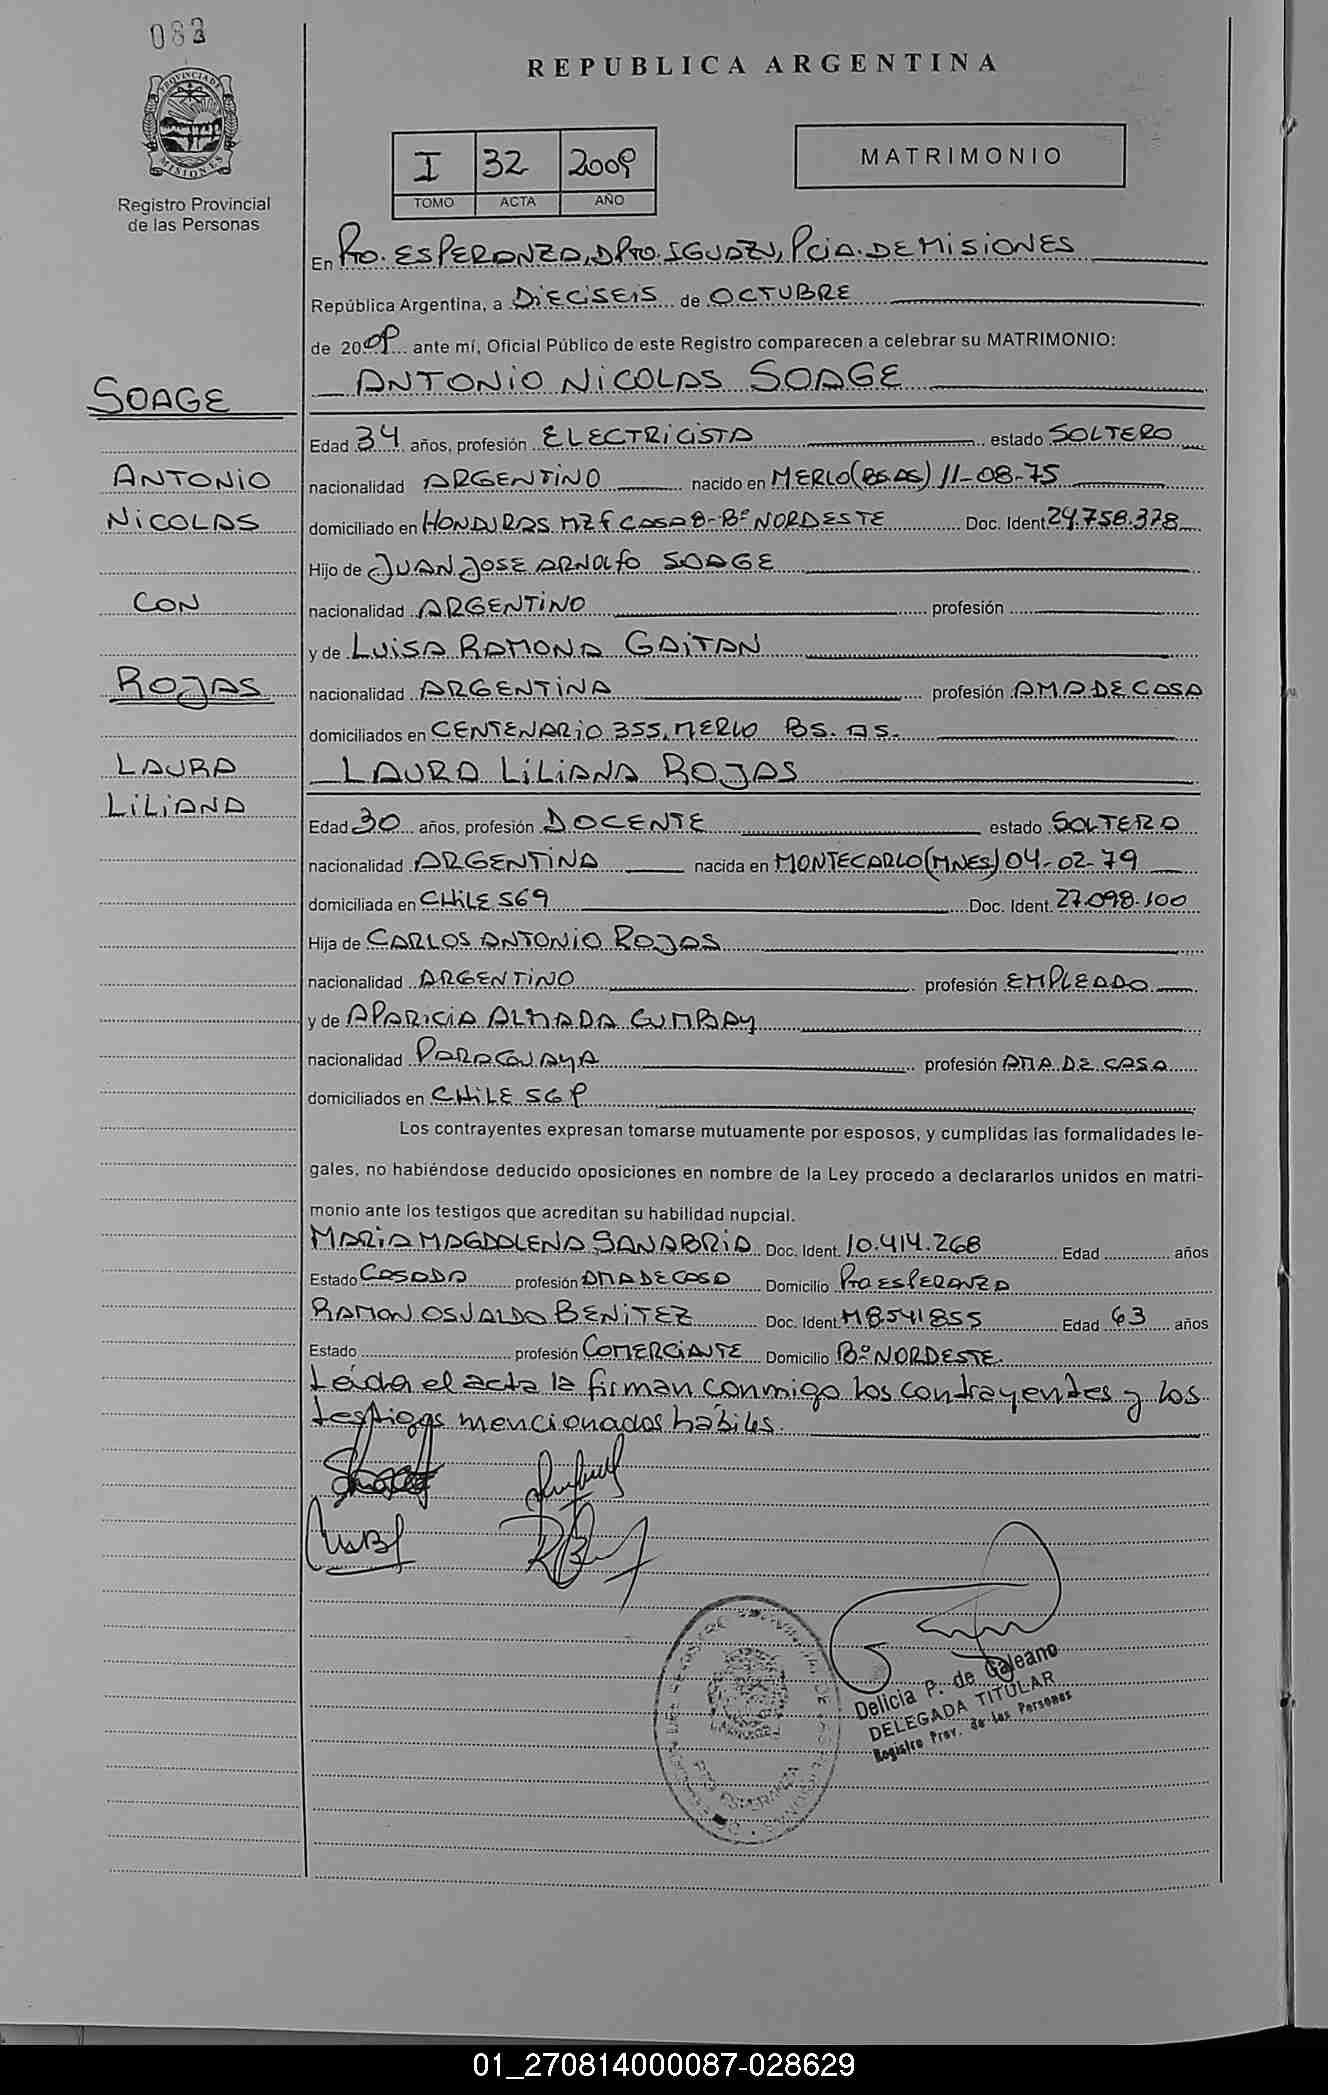 083
PROVINCIA DE
MISIONES
Registro Provincial
de las Personas
REPUBLICA ARGENTINA
I 32 2009
TOMO ACTA AÑO
MATRIMONIO
En Pto. ESPERANZA, DPto. IGUAZU, PciA. DE MISIONES
República Argentina, a DIECISEIS de OCTUBRE
de 2009 ante mí, Oficial Público de este Registro comparecen a celebrar su MATRIMONIO:
ANTONIO NICOLAS SOAGE
SOAGE
Edad 34 años, profesión ELECTRICISTA estado SOLTERO
ANTONIO
nacionalidad ARGENTINO nacido en MERLO (BS.AS) 11-08-75
NICOLAS
domiciliado en HONDURAS MZ F CASA 8-Bº NORDESTE Doc. Ident. 24.758.378
Hijo de JUAN JOSE ARNOLFO SOAGE
CON
nacionalidad ARGENTINO profesión
y de LUISA RAMONA GAITAN
ROJAS
nacionalidad ARGENTINA profesión AMA DE CASA
domiciliados en CENTENARIO 355, MERLO BS. AS.
LAURA
LILIANA
LAURA LILIANA ROJAS
Edad 30 años, profesión DOCENTE estado SOLTERA
nacionalidad ARGENTINA nacida en MONTECARLO (MNES) 04-02-79
domiciliada en CHILE 569 Doc. Ident. 27.098.100
Hija de CARLOS ANTONIO ROJAS
nacionalidad ARGENTINO profesión EMPLEADO
y de APARICIA ALMADA CUMBAY
nacionalidad PARAGUAYA profesión AMA DE CASA
domiciliados en CHILE 569
Los contrayentes expresan tomarse mutuamente por esposos, y cumplidas las formalidades le-
gales, no habiéndose deducido oposiciones en nombre de la Ley procedo a declararlos unidos en matri-
monio ante los testigos que acreditan su habilidad nupcial.
MARIA MAGDALENA SANABRIA Doc. Ident. 10.414.268 Edad años
Estado CASADA profesión AMA DE CASA Domicilio Pto ESPERANZA
RAMON OSVALDO BENITEZ Doc. Ident. M8541855 Edad 63 años
Estado profesión COMERCIANTE Domicilio Bº NORDESTE.
Leida el acta la firman conmigo los contrayentes y los
testigos mencionados habiles.
PTO. ESPERANZA
Delicia P. de Galeano
DELEGADA TITULAR
Registro Prov. de las Personas
01_270814000087-028629